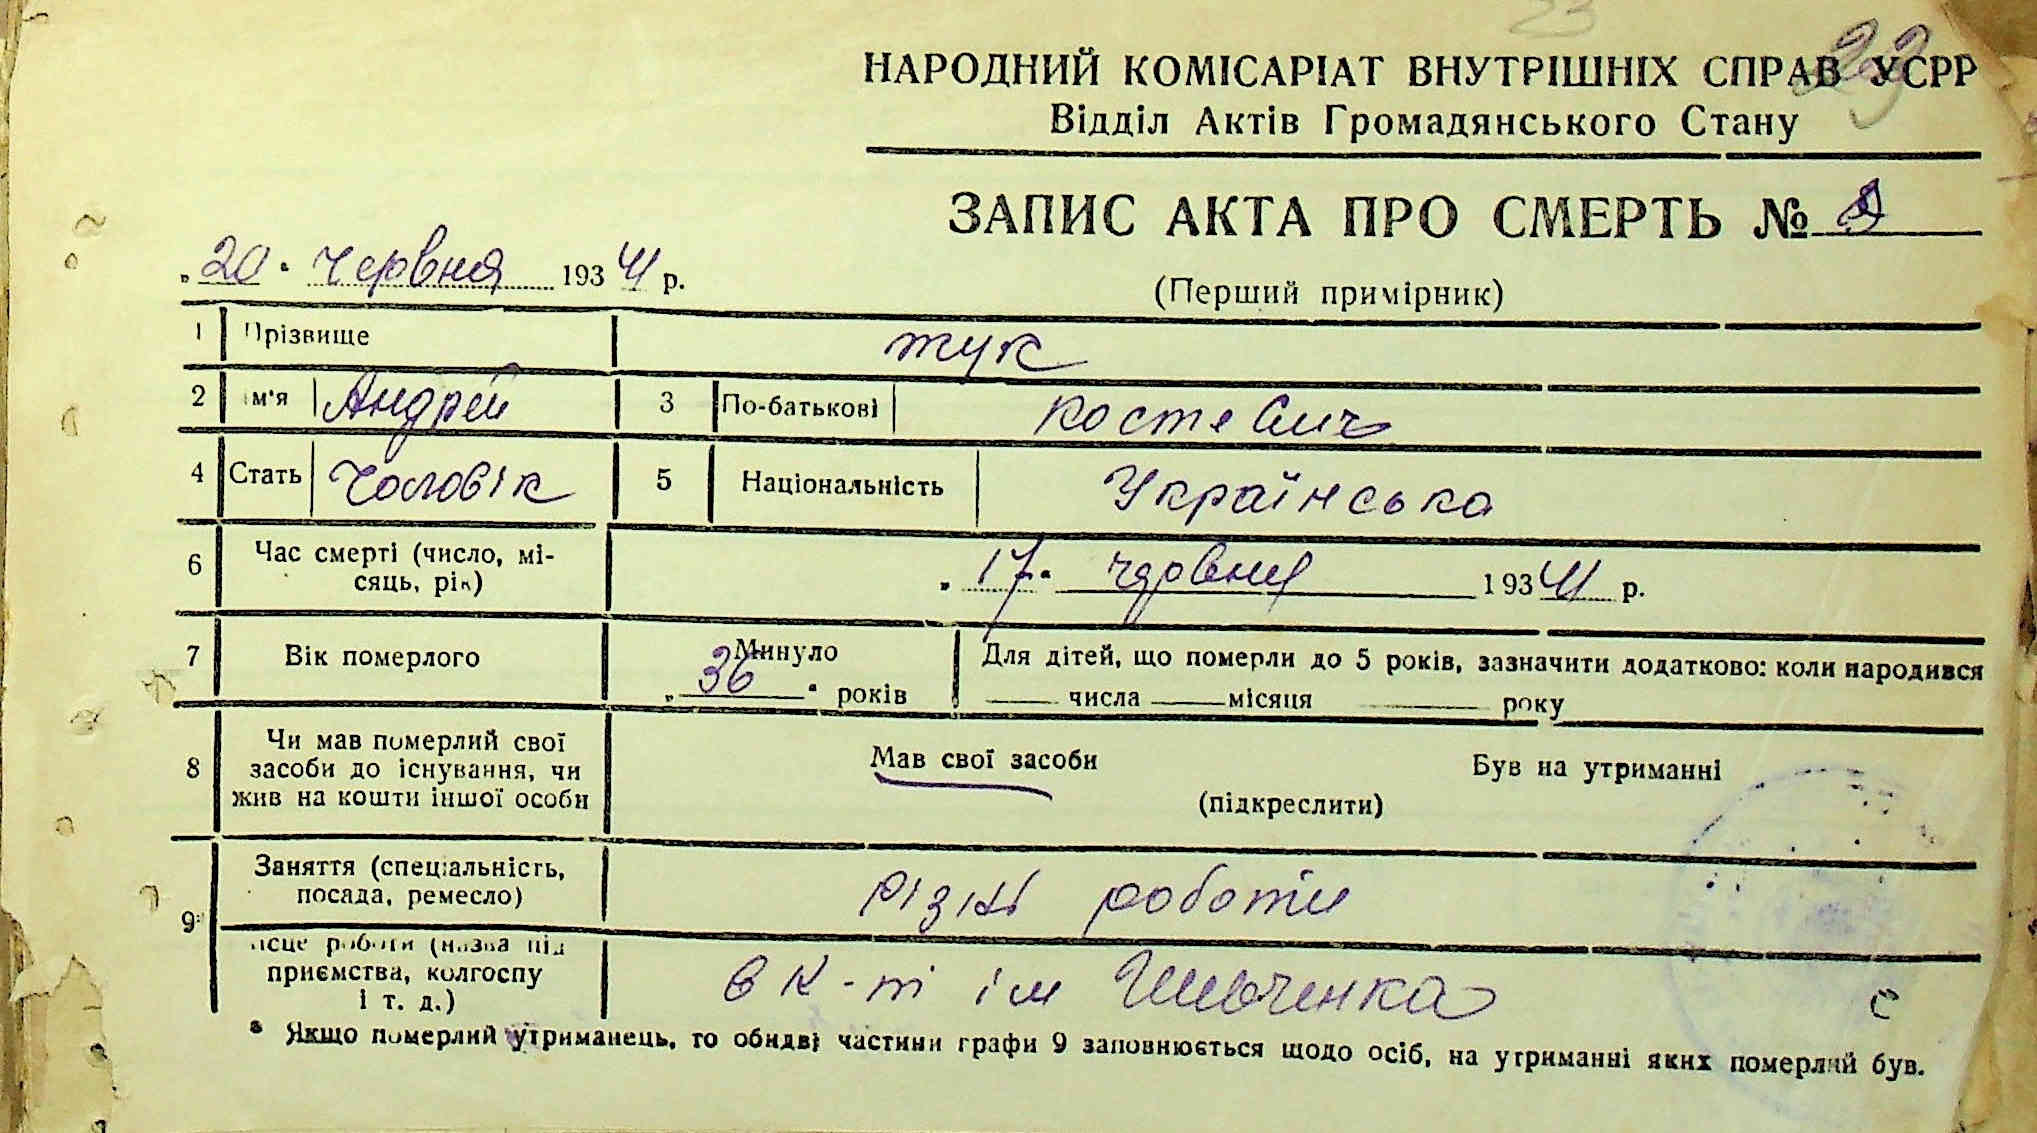 23
НАРОДНИЙ КОМІСАРІАТ ВНУТРІШНІХ СПРАВ УСРР
Відділ Актів Громадянського Стану
ЗАПИС АКТА ПРО СМЕРТЬ №
(Перший примірник)
„20“ червня 1934 р.
1 Прізвище Жук
2 Ім'я Андрей 3 По-батькові Костевич
4 Стать Чоловік 5 Національність Українська
6 Час смерті (число, мі-
сяць, рік) „17“ червня 1934 р.
7 Вік померлого Минуло
„36“ років
Для дітей, що померли до 5 років, зазначити додатково: коли народився
числа місяця року
8 Чи мав померлий свої
засоби до існування, чи
жив на кошти іншої особи
Мав свої засоби Був на утриманні
(підкреслити)
9 Заняття (спеціальність,
посада, ремесло) різні роботи
ісце роботи (назва під
приємства, колгоспу
і т. д.) в к-пі ім Шевченка
* Якщо померлий утриманець, то обидві частини графи 9 заповнюється щодо осіб, на утриманні яких померлий був.